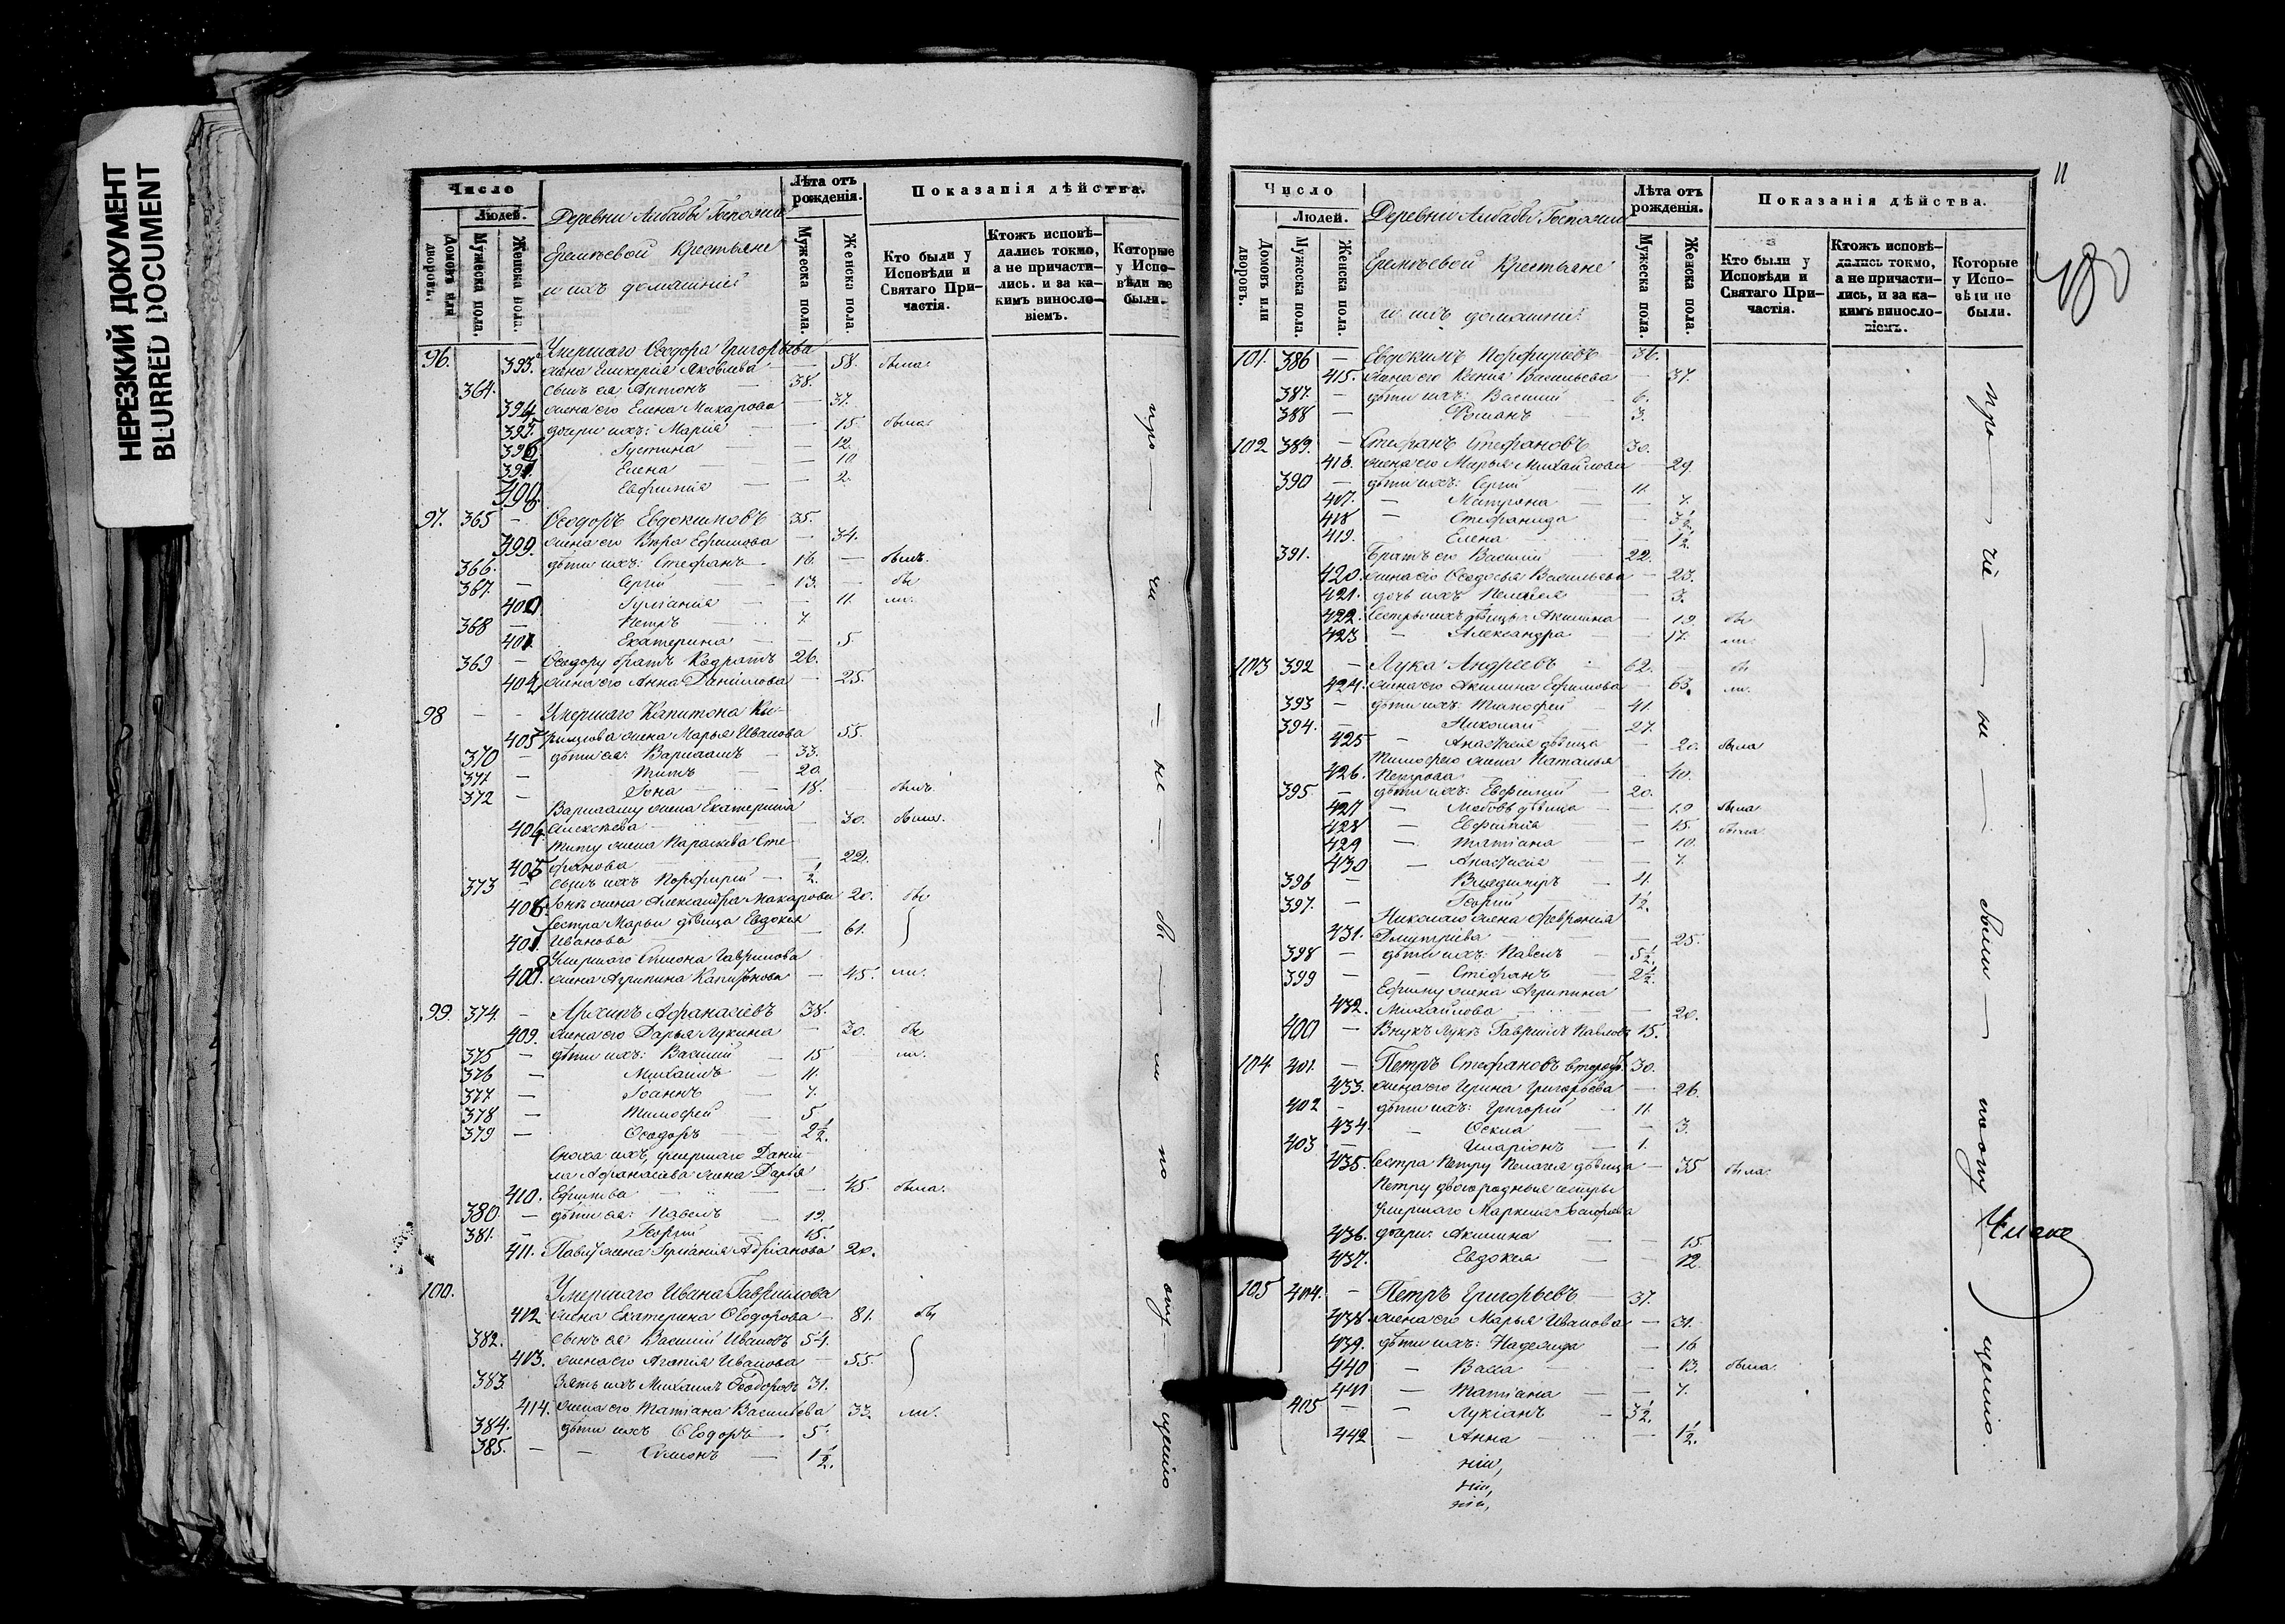 НЕРЕЗКИЙ ДОКУМЕНТ
BLURRED DOCUMENT
Число
Людей.
Домовъ или дворовъ.
Мужеска пола.
Женска пола.
Деревни Госпожи
Крестьяне
и ихъ домашніе
Лѣта отъ рожденія.
Мужеска пола.
Женска пола.
Показанія дѣйства.
Кто были у Исповѣди и Святаго Причастія.
Ктожъ исповѣдались токмо, а не причастились. и за какимъ винословіемъ.
Которые у Исповѣди не были.
96. Умершаго Ѳеодора Григорьева
393. жена Гликерія Яковлева — 58. была
364. сынъ ея Антонъ — 38.
394. жена его Елена Макарова — 37.
395. дочери ихъ: Марія — 15. была
396. Іустина — 12.
397. Елена — 10
498. Евфимія — 2.
97. 365 — Ѳеодоръ Евдокимовъ 35.
399. жена его Вѣра Ефимова — 34.
366. дѣти ихъ: Стефанъ — 16. — былъ.
367. — Сергій — 13. — бы
400 Іуліанія — 11. ли.
368 — Петръ — 7
401 Екатерина — 5
369 — Ѳеодору братъ Кодратъ 26.
402 жена его Анна Данилова — 25.
98 — — Умершаго Капитона
405 жена Марья Иванова 55.
370 — дѣти ея: Варлаамъ — 33.
371 — Титъ — 20.
372 — Іона — 18. былъ.
Варлааму жена Екатерина
404 Алексѣева — 30. была.
Титу жена Параскева Сте-
405 фанова — 22.
373 — сынъ ихъ Порфирій — 1/2.
406 Іонѣ жена Александра Макарова 20. бы
Сестра Марьи дѣвица Евдокія
407 Иванова — 61.
Умершаго Симона Гаврилова
408. жена Агрипина Капитонова — 45. ли.
99. 374. — Архипъ Афанасіевъ 38.
409. жена его Дарья Лукина — 30. бы
375 — дѣти ихъ: Василій — 15 ли.
376 — Михаилъ — 11.
377 — Іоаннъ — 7.
378 — Тимофей — 5
379 — Ѳеодоръ — 2 1/2.
Сноха ихъ, умершаго Дані-
ла Афанасіева жена Дарья
410. Ефимова — 45. была.
380. — дѣти ея: Павелъ — 19.
381. — Георгій — 15.
411. Павлу жена Іуліанія Адріанова 20.
100. Умершаго Ивана Гаврилова
412 жена Екатерина Ѳеодорова — 81. бы
382. сынъ ея Василій Ивановъ 54.
413. жена его Агапія Иванова — 55.
383. Зять ихъ Михаилъ Ѳеодоровъ 31.
414. жена его Татіана Васильева 33. ли.
384. дѣти ихъ Ѳеодоръ — 5
385. — — Симонъ — 1 1/2.
про — чи — не — бы — ли по опу — щенію
11
Число
Людей.
Домовъ или дворовъ.
Мужеска пола.
Женска пола.
Деревни Госпожи
Крестьяне
и ихъ домашніе
Лѣта отъ рожденія.
Мужеска пола.
Женска пола.
Показанія дѣйства.
Кто были у Исповѣди и Святаго Причастія.
Ктожъ исповѣдались токмо, а не причастились, и за какимъ винословіемъ.
Которые у Исповѣди не были.
101. 386 — Евдокимъ Порфирьевъ 36.
415. жена его Ксенія Васильева — 37.
387. — дѣти ихъ: Василій — 6.
388 — Романъ — 3.
102 389. — Стефанъ Стефановъ 30.
416. жена его Марья Михайлова — 29.
390 — дѣти ихъ: Сергій — 11.
417. — Матрона — 7.
418 — Стефанида — 3 1/2
419. Елена — 1/2.
391. Братъ его Василій — 22.
420. жена его Ѳеодосья Васильева — 23.
421. дочь ихъ Пелагія — 3.
422. Сестры ихъ дѣвицы Акилина — 19. бы
423 — Александра — 17. ли.
103 392 — Лука Андреевъ — 62. бы
424. жена его Акилина Ефимова — 63. ли.
393 — дѣти ихъ: Тимофей — 41.
394. — Николай — 27.
425 — Анастасія дѣвица — 20. была
Тимофею жена Наталья
426. Петрова — 40.
395 — дѣти ихъ: Евфимій — 20.
427 — Любовь дѣвица — 19 была
428 — Евфимія — 15. была
429 — Татіана — 10.
430 — Анастасія — 7.
396 — Владиміръ — 4.
397. — Георгій — 1 1/2.
Николаю жена Февронія
431. Дмитріева — 25.
398 — дѣти ихъ: Павелъ — 5 1/2.
399 — — Стефанъ — 2 1/2.
Ефиму жена Агрипина
432. Михайлова — 20.
400 — Внукъ Луки Гавріилъ Павловъ 15.
104 401. — Петръ Стефановъ второй 30.
433. жена его Ирина Григорьева — 26.
402 — дѣти ихъ: Григорій — 11.
434. — Ѳекла — 3.
403 — Иларіонъ — 1.
435. Сестра Петру Пелагія дѣвица — 35 была.
Петру двоюродныя сестры
умершаго Маркела
436. дочери: Акилина — 15.
437. Евдокія — 12
105 404. — Петръ Григорьевъ — 37.
438. жена его Марья Иванова — 31.
439. дѣти ихъ: Надежда — 16
440 — Васса — 13. была.
441 — Татіана — 7.
405 — — Лукіанъ — 3 1/2.
442 — Анна — 1 1/2.
про — чіе — не — были — по опу — щенію.